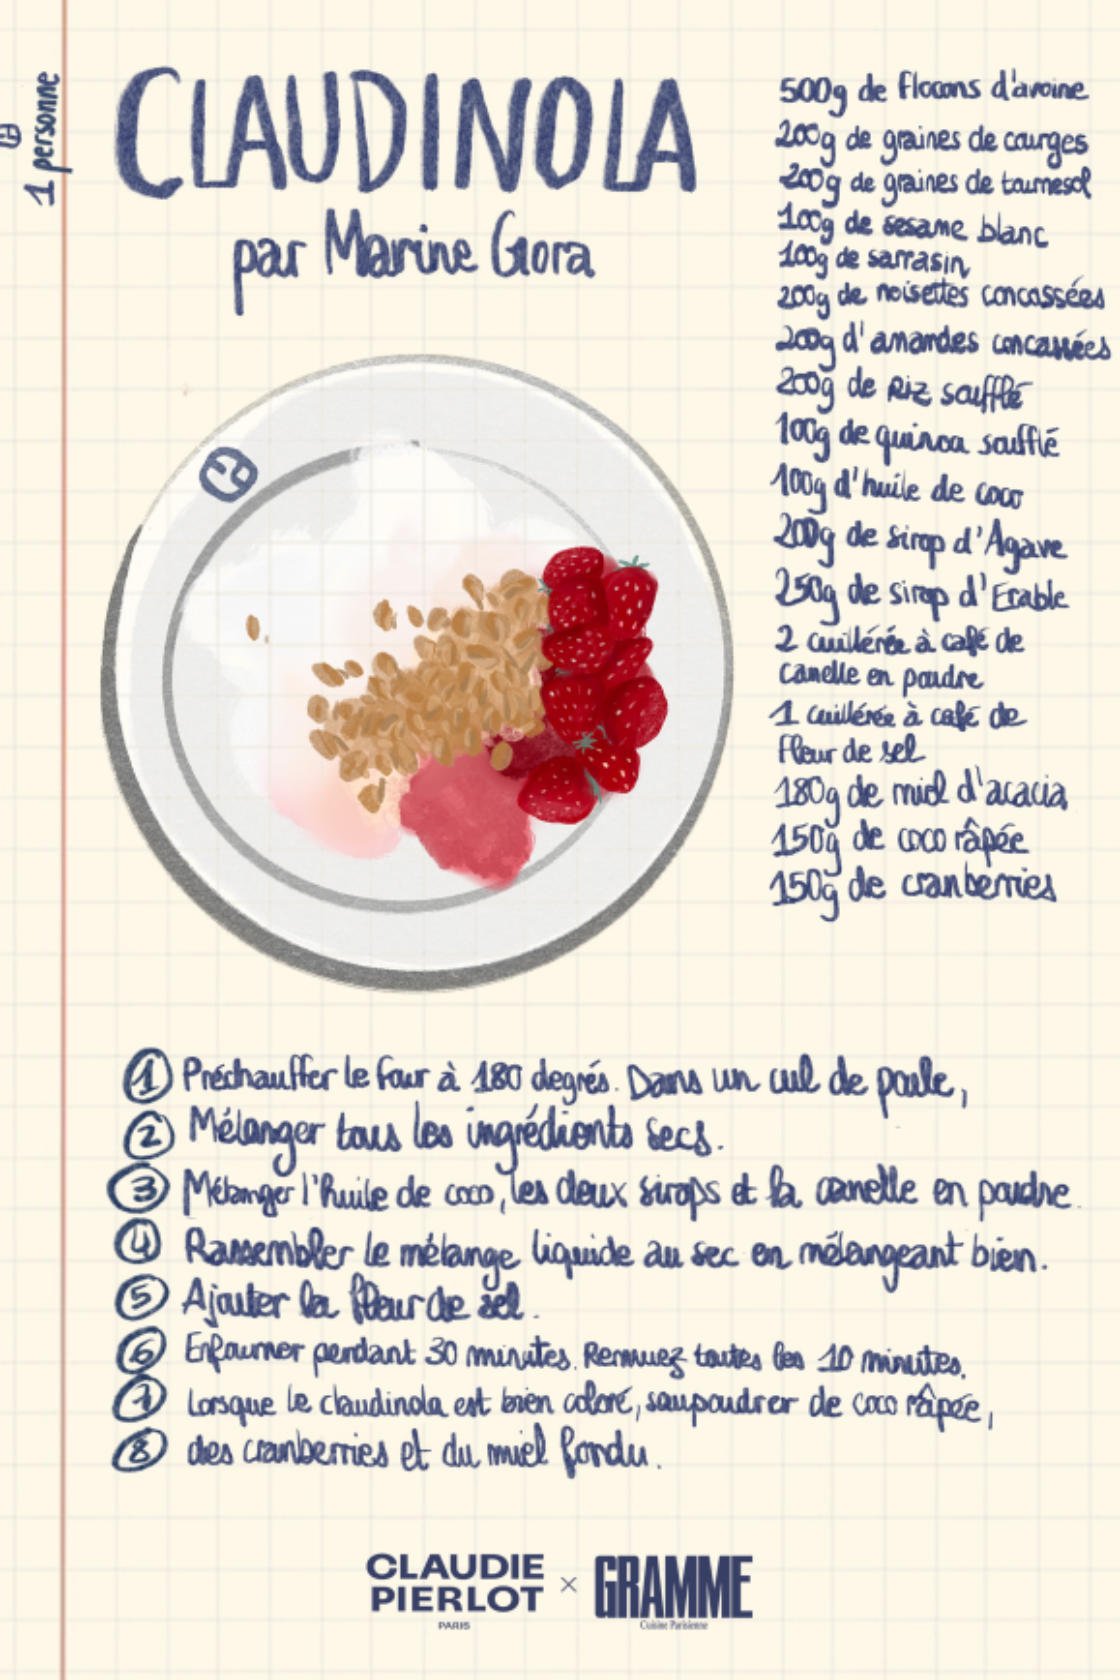 1 personne
CLAUDINOLA
par Marine Gora
500g de flocons d'avoine
200g de graines de courges
200g de graines de tournesol
100g de sesame blanc
100g de sarrasin
200g de noisettes concassées
200g d'amandes concassées
200g de Riz soufflé
100g de quinoa soufflé
100g d'huile de coco
200g de sirop d'Agave
250g de sirop d'Erable
2 cuillérée à café de
canelle en poudre
1 cuillérée à café de
fleur de sel
180g de miel d'acacia
150g de coco râpée
150g de cranberries
1 Préchauffer le four à 180 degrés. Dans un cul de poule,
2 Mélanger tous les ingrédients secs.
3 Mélanger l'huile de coco, les deux sirops et la canelle en poudre.
4 Rassembler le mélange liquide au sec en mélangeant bien.
5 Ajouter la fleur de sel.
6 Enfourner pendant 30 minutes. Remuez toutes les 10 minutes.
7 Lorsque le claudinola est bien coloré, saupoudrer de coco râpée,
8 des cranberries et du miel fondu.
CLAUDIE
PIERLOT
PARIS
×
GRAMME
Cuisine Parisienne